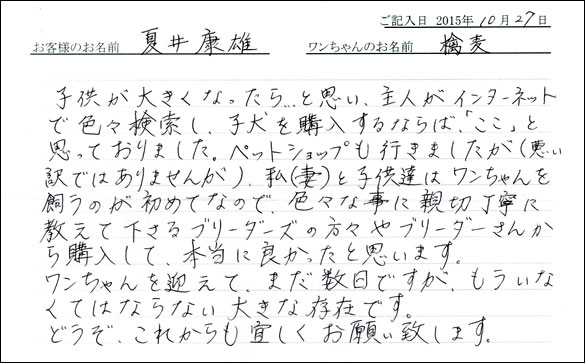 ご記入日 2015年10月27日
お客様のお名前 夏井康雄 ワンちゃんのお名前 檎麦
子供が大きくなったら…と思い、主人がインターネット
で色々検索し、子犬を購入するならば、「ここ」と
思っておりました。ペットショップも行きましたが(悪い
訳ではありませんが)、私(妻)と子供達はワンちゃんを
飼うのが初めてなので、色々な事に親切丁寧に
教えて下さるブリーダーズの方々やブリーダーさんか
ら購入して、本当に良かったと思います。
ワンちゃんを迎えて、まだ数日ですが、もういな
くてはならない大きな存在です。
どうぞ、これからも宜しくお願い致します。